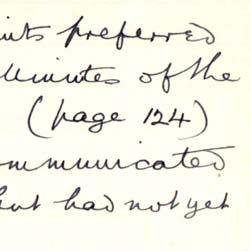 nts preferred
Minutes of the
(page 124)
ommunicated
but had not yet